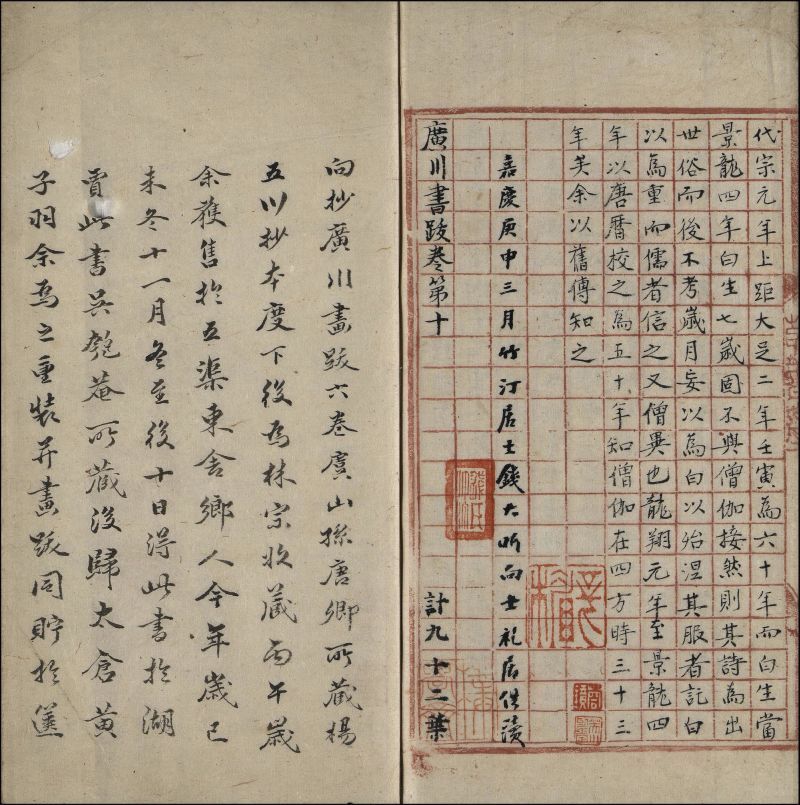 代宗元年上距大足二年壬寅為六十年而白生當
景龍四年白生七歲固不與僧伽接然則其詩為出
世俗而後不考歲月妄以為白以殆涅其服者託白
以為重而儒者信之又僧異也龍翔元年至景龍四
年以唐曆校之為五十年知僧伽在四方時三十三
年矣余以舊傳知之
嘉慶庚申三月竹汀居士錢大昕向士礼居借讀
廣川書跋卷第十 計九十二葉
向抄廣川畫跋六卷虞山孫唐卿所藏楊
五川抄本度下後為林宗收藏丙午歲
余獲售於五渠東舍鄉人今年歲己
未冬十一月冬至後十日得此書於湖
賈此書吳匏菴所藏後歸太倉黃
子羽余為之重裝并畫跋同貯於篋